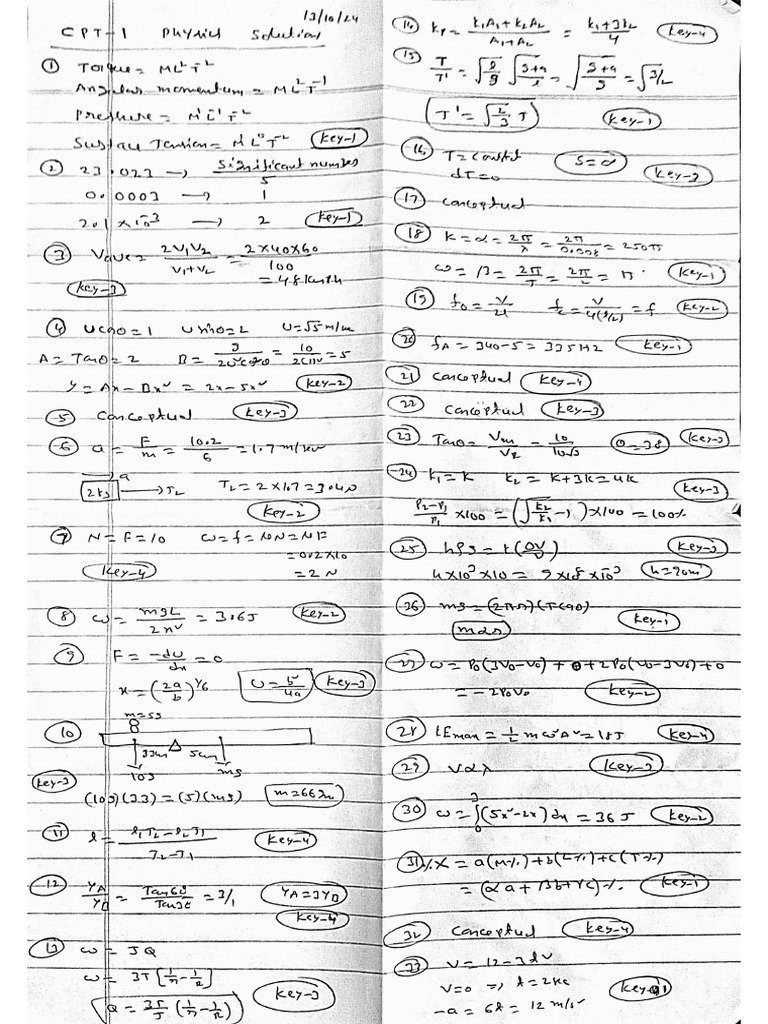 13/10/24
CPT-1 Physics Solutions
① Torque = ML²T⁻²
Angular momentum = ML²T⁻¹
Pressure = M¹L⁻¹T⁻²
Surface Tension = M¹L⁰T⁻² Key-1
② 23.023 → Significant number 5
0.0003 → 1
2.1 × 10⁻³ → 2 Key-1
③ Vave = 2V₁V₂/V₁+V₂ = 2×40×60/100
= 48 km/h
Key-3
④ ucosθ = 1 usinθ = 2 U = √5 m/sec
A = Tanθ = 2 B = g/2u²cos²θ = 10/2(1)² = 5
y = Ax - Bx² = 2x - 5x² Key-2
⑤ Conceptual Key-3
⑥ a = F/m = 10.2/6 = 1.7 m/sec
a
2kg → T₂ T₂ = 2×1.7 = 3.4N
Key-2
⑦ N = F = 10 W = f = μN = μF
= 0.2×10
Key-4 = 2N
⑧ W = mgL/2n² = 3.6J Key-2
⑨ F = -dU/dx = 0
x = (2a/b)^1/6 U = b²/4a Key-3
⑩ m=5g
5cm
10g mg
Key-3
(10g)(33) = (5)(mg) m=66gm
⑪ l = l₁T₂-l₂T₁/T₂-T₁ Key-4
⑫ YA/YB = Tan60/Tan30 = 3/1 YA=3YB
Key-4
⑬ W = JQ
Q = Key-3
⑭ Kp = K₁A₁+K₂A₂/A₁+A₂ = K₁+3K₂/4 Key-4
⑮ T/T' = √3/2
T' = √2/3 T Key-1
⑯ T = Constt S=∞
dT=0 Key-3
⑰ Conceptual
⑱ K = α = 2π/λ = 2π/0.008 = 250π
ω = β = 2π/T = 2π/2 = π Key-1
⑲ f₀ = V/2l fc = V/4(l/2) = f Key-2
⑳ fA = 340-5 = 335Hz Key-1
㉑ Conceptual Key-4
㉒ Conceptual Key-3
㉓ Tanθ = Vm/VR = θ=30 Key-3
㉔ K₁=K K₂ = K+3K=4K
P₂-P₁/P₁ ×100 = (√K₂/K₁ -1)×100 = 100% Key-3
㉕ hρg = K(ΔV/V) Key-3
4×10³×10 = 9×10⁸×10⁻³
㉖ mg = (2πr)(Tcosθ) Key-1
mαr
㉗ W = P₀(3V₀-V₀) + 0 + 2P₀(V₀-3V₀)+0
= -2P₀V₀ Key-2
㉘ KEmax = ½mω²A² = 18J Key-4
㉙ Vαλ Key-3
㉚ W = ∫₀³(5x²-2x)dx = 36J Key-2
㉛ %X = a(M%)+b(L%)+c(T%)
= (αa+βb+γc)% Key-1
㉜ Conceptual Key-4
㉝
V=0 ⇒ t=2sec
-a = 6t = 12 m/s² Key-1